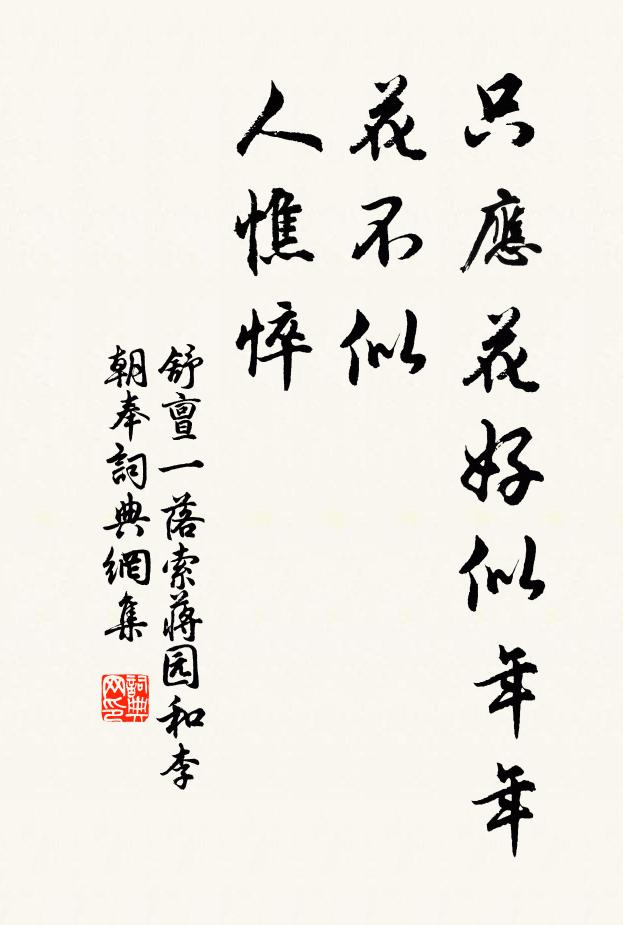 只應花好似年年
花不似
人憔悴
舒亶一落索蔣园和李
朝奉詞典網集
詞典
网印